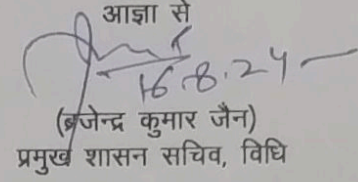 आज्ञा से
16.8.24
(ब्रजेन्द्र कुमार जैन)
प्रमुख शासन सचिव, विधि